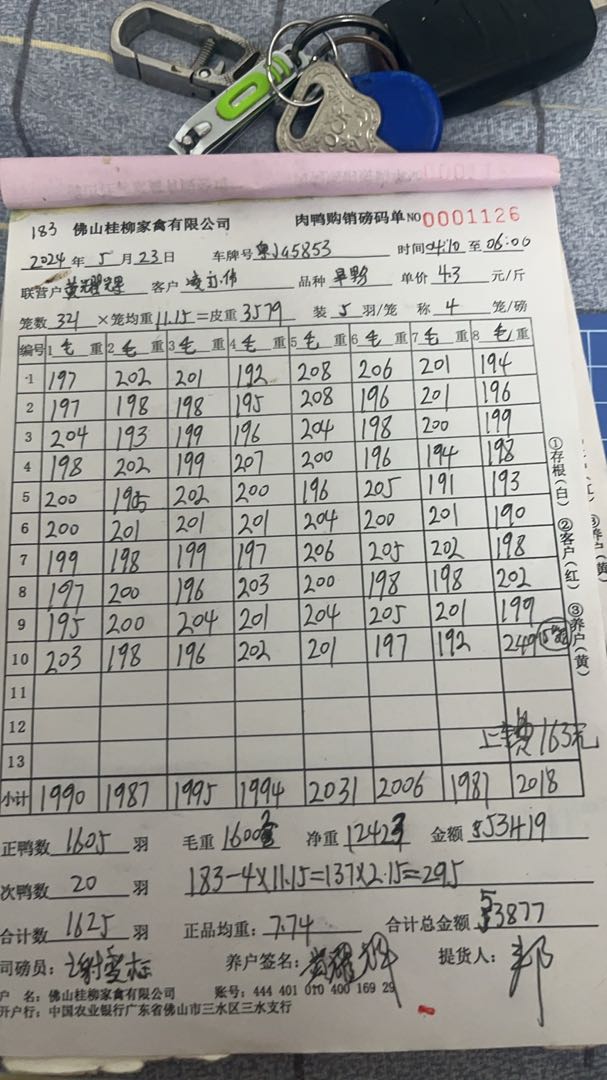 183 佛山桂柳家禽有限公司 肉鸭购销磅码单 NO 0001126
2024 年 5 月 23 日 车牌号 粤J45853 时间 04:10 至 06:00
联营户 黄耀辉 客户 品种 单价 4.3 元/斤
笼数 321 ×笼均重 11.15 =皮重 3579 装 5 羽/笼 称 4 笼/磅
编号 1 毛 重 2 毛 重 3 毛 重 4 毛 重 5 毛 重 6 毛 重 7 毛 重 8 毛 重
1 197 202 201 192 208 206 201 194
2 197 198 198 195 208 196 201 196
3 204 193 199 196 204 198 200 199
4 198 202 199 207 200 196 194 198
5 200 195 202 200 196 205 191 193
6 200 201 201 201 204 200 201 190
7 199 198 199 197 206 205 202 198
8 197 200 196 203 200 198 198 202
9 195 200 204 201 204 205 201 199
10 203 198 196 202 201 197 192 249 5笼
11
12
上车费 163元
13
小计 1990 1987 1995 1994 2031 2006 1981 2018
①存根(白) ②客户(红) ③养户(黄)
正鸭数 1605 羽 毛重 16002 净重 12423 金额 53419
次鸭数 20 羽 183-4×11.15=137×2.15=295
合计数 1625 羽 正品均重: 7.74 合计总金额 53877
司磅员: 养户签名: 黄耀辉 提货人: 邦
户 名: 佛山桂柳家禽有限公司 账号: 444 401 010 400 169 29
开户行: 中国农业银行广东省佛山市三水区三水支行